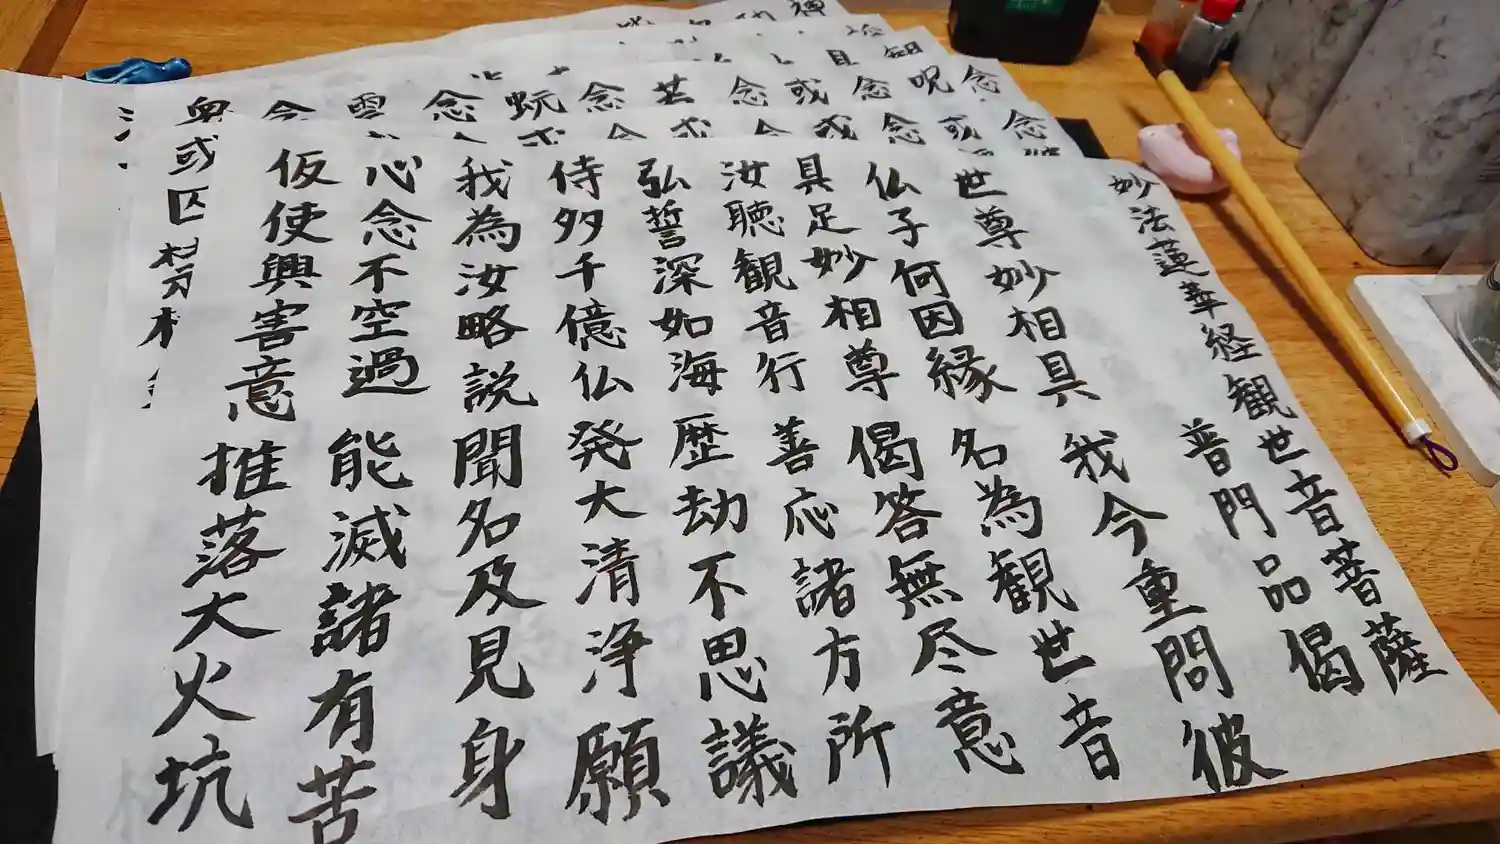 妙法蓮華経観世音菩薩
普門品偈
世尊妙相具 我今重問彼
仏子何因縁 名為観世音
具足妙相尊 偈答無尽意
汝聴観音行 善応諸方所
弘誓深如海 歴劫不思議
侍多千億仏 発大清浄願
我為汝略説 聞名及見身
心念不空過 能滅諸有苦
仮使興害意 推落大火坑
念
或
念
或
念
或
念
呪
念
或
念
若
念
蚖
念
雲
念